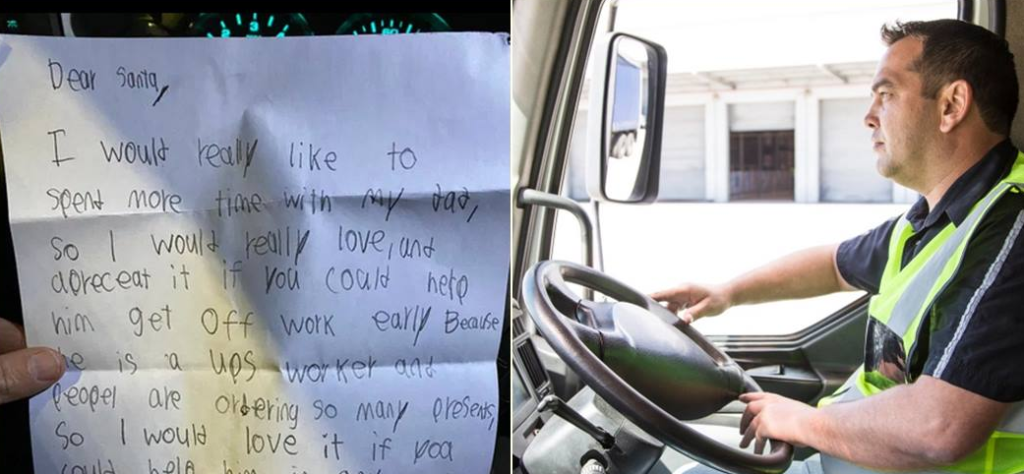 Dear Santa,
I would really like to
spend more time with my dad,
so I would really love, and
apreceat it if you could help
him get Off work early Because
he is a ups worker and
peopel are ordering so many presents,
So I would love it if you
could help him